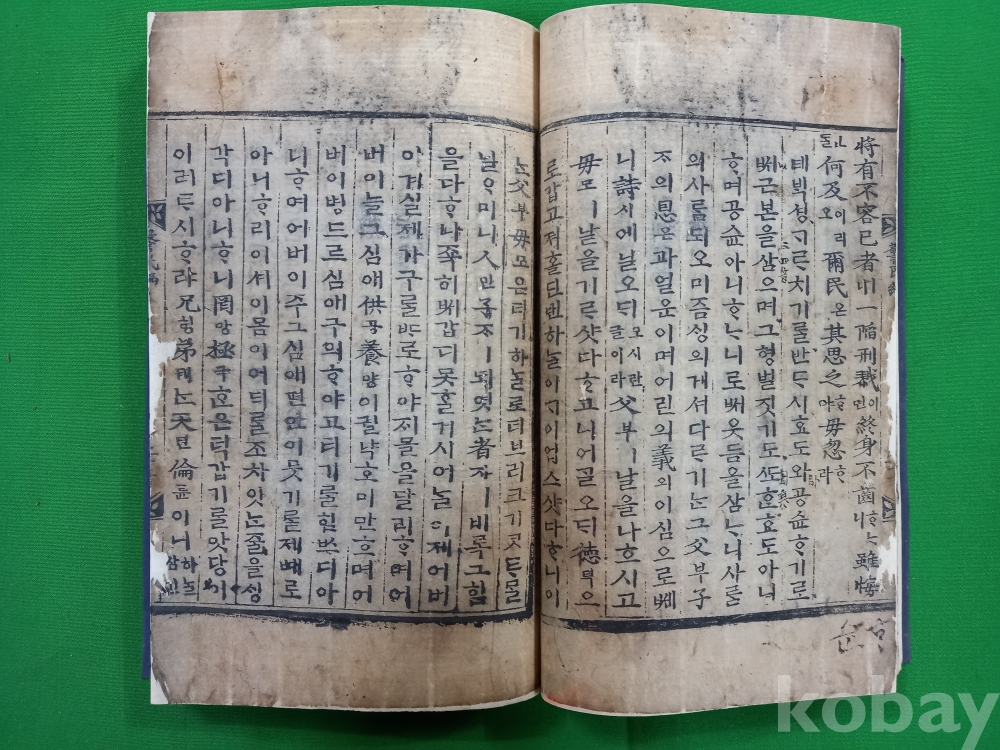 將有不容已者니一陷刑戮이면終身不齒ᄒᆞᄂᆞ니雖悔
ᆫᄃᆞᆯ何及이리오爾民은其思之ᄒᆞ야毋忽ᄒᆞ라
테ᄇᆡᆨ셩ᄀᆞᄅᆞ치기ᄅᆞᆯ반ᄃᆞ시효도와공슌ᄒᆞ기로
ᄡᅥ근본을삼으며그형벌짓기도ᄯᅩᄒᆞᆫ효도아니
ᄒᆞ며공슌아니ᄒᆞᄂᆞ니로ᄡᅥ웃듬을삼ᄂᆞ니사ᄅᆞᆷ
의사ᄅᆞᆷ되오미즘ᄉᆡᆼ의게셔다ᄅᆞ기ᄂᆞᆫ그父부子
ᄌᆞ의恩은과얼운이며어린의義의이심으로ᄡᅦ
니詩시에ᄀᆞᆯ오ᄃᆡ모시란글이라父부ㅣ날을나ᄒᆞ시고
毋모ㅣ날을기ᄅᆞ샷다ᄒᆞ고니어ᄀᆞᆯ오ᄃᆡ德덕으
로갑고져홀딘댄하ᄂᆞᆯ이ᄀᆞ이업ᄉᆞ샷다ᄒᆞ니이
ᄂᆞᆫ父부毋모은터기하ᄂᆞᆯ로더브러크기ᄀᆞᆺᄐᆞᆷᄋᆞᆯ
닐ᄋᆞ미니人인子ᄌᆞㅣ되엿ᄂᆞᆫ者쟈ㅣ비록그힘
을다ᄒᆞ나足히ᄡᅥ갑디못ᄒᆞᆯ거시어ᄂᆞᆯ이제어버
이겨실제가구ᄅᆞᆯᄯᅡ로ᄒᆞ야지믈을달리ᄒᆞ며어
버이늘그심애供공養양이궐냑호미만ᄒᆞ며어
버이병드르심애구의ᄒᆞ야고티기ᄅᆞᆯ힘ᄡᅳ디아
니ᄒᆞ여어버이주그심애면안이뭇기ᄅᆞᆯ제ᄢᅢ로
아니ᄒᆞ리이셔이몸이어ᄃᆡ로조차앗ᄂᆞᆫ줄을ᄉᆡᆼ
각디아니ᄒᆞ니罔망極극ᄒᆞᆫ은덕갑기ᄅᆞᆯ맛당이
이러ᄐᆞ시ᄒᆞ랴兄형弟뎨ᄂᆞᆫ天텬倫륜이니하ᄂᆞᆯ삼긴
kobay